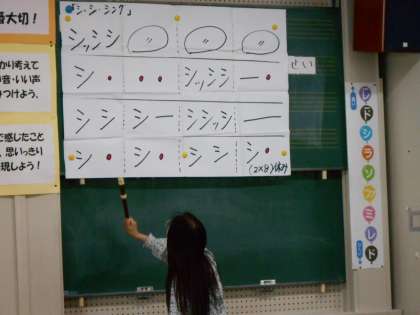 「シ・シ・シンク」
シッシシ 〃 〃 〃
シ ・ ・ ・ シッシシ ー ・
シシ シー シシッシ ー
シ ・ シ ・ シ シ シ ・
(2×8)休み
大切!
かり考えて
音・いい声
つけよう。
で感じたこと
、思いっきり
現しよう!
せい
レ
ド
シ
ラ
ソ
ファ
ミ
レ
ド